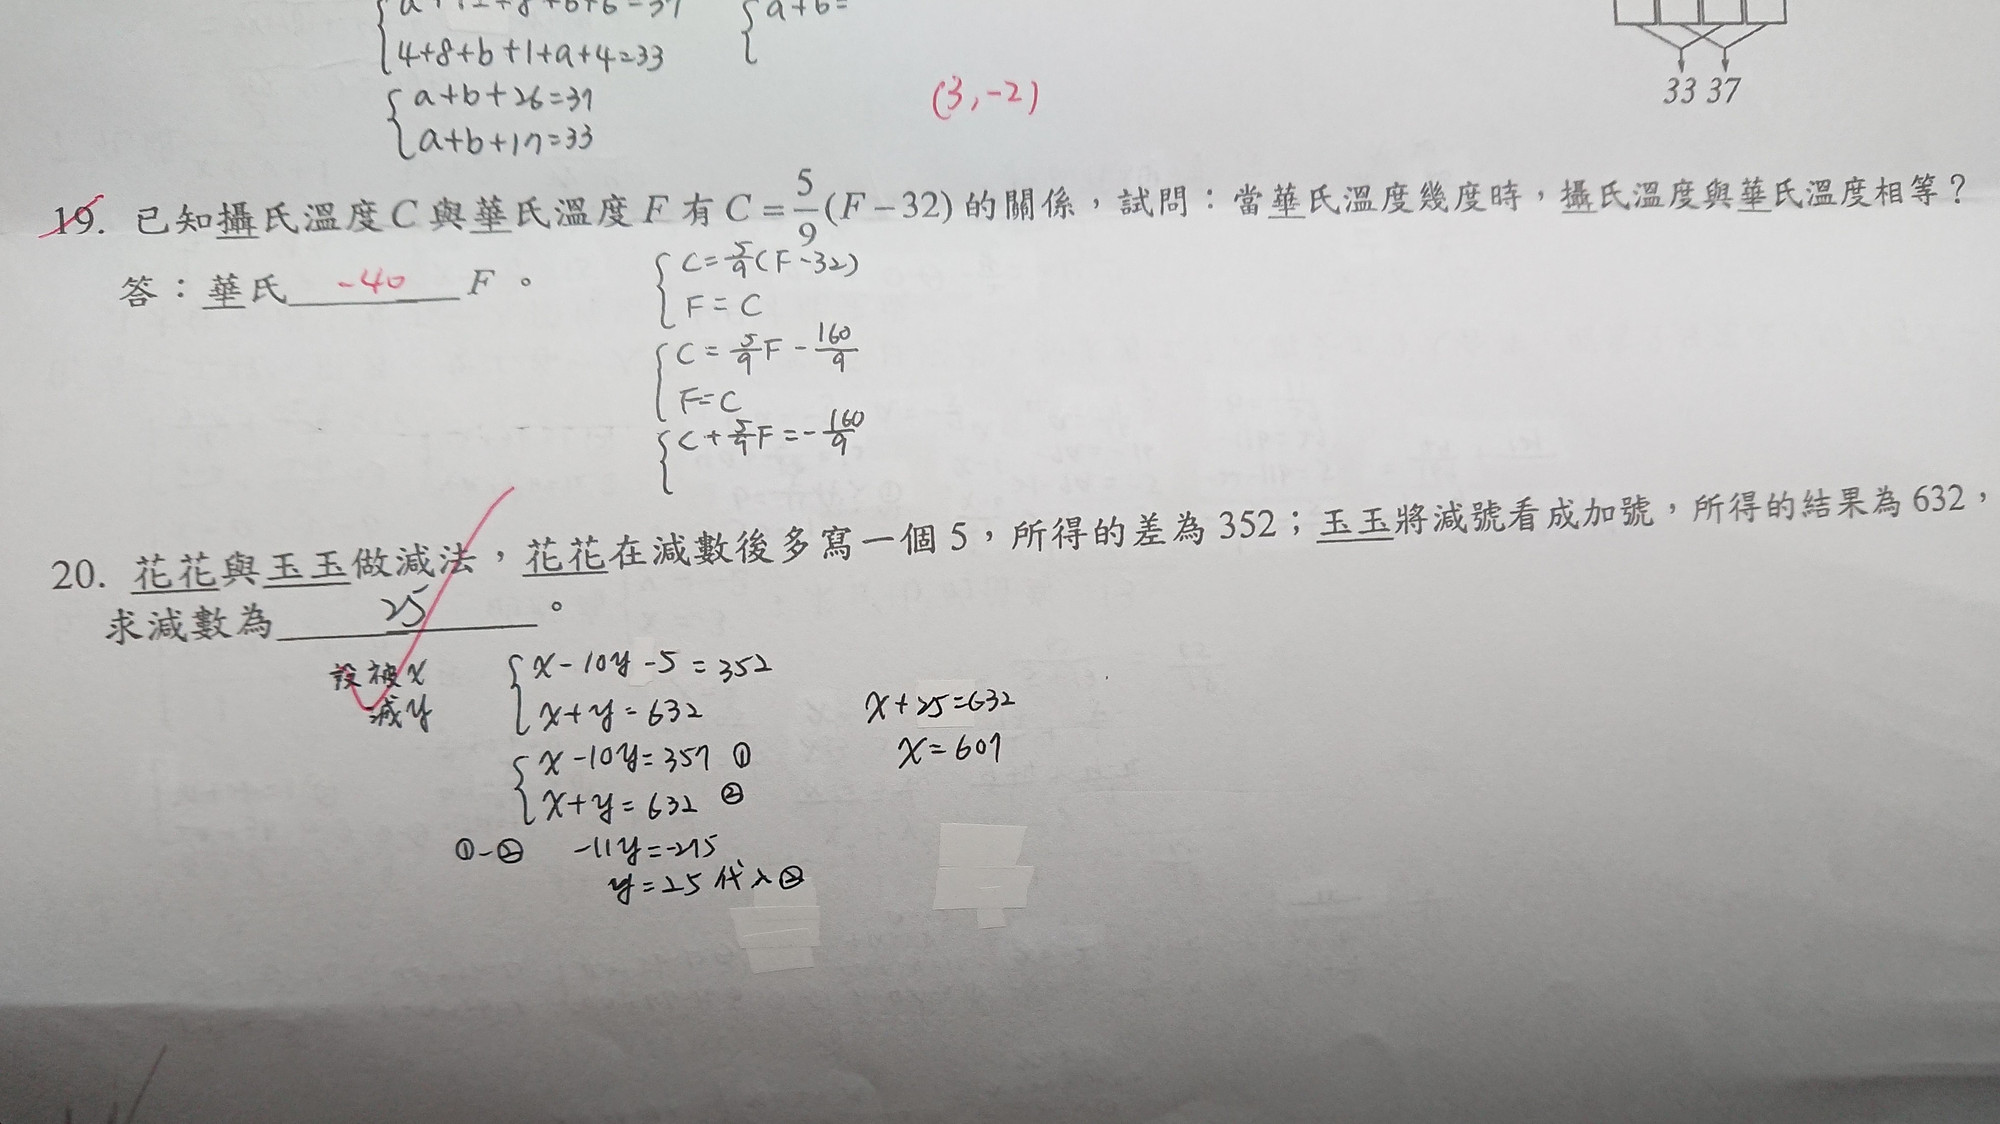 a+12+8+b+6=37
a+b=
4+8+b+1+a+4=33
a+b+26=37
a+b+17=33
(3,-2)
33 37
19. 已知攝氏溫度C與華氏溫度F有C=5/9(F-32)的關係，試問：當華氏溫度幾度時，攝氏溫度與華氏溫度相等？
答：華氏 -40 F。
C=5/9(F-32)
F=C
C=5/9F-160/9
F=C
C+5/9F=-160/9
20. 花花與玉玉做減法，花花在減數後多寫一個5，所得的差為352；玉玉將減號看成加號，所得的結果為632，
求減數為 25 。
設被x
減y
x-10y-5=352
x+y=632
x-10y=357 ①
x+y=632 ②
①-② -11y=-275
y=25代入②
x+25=632
x=607